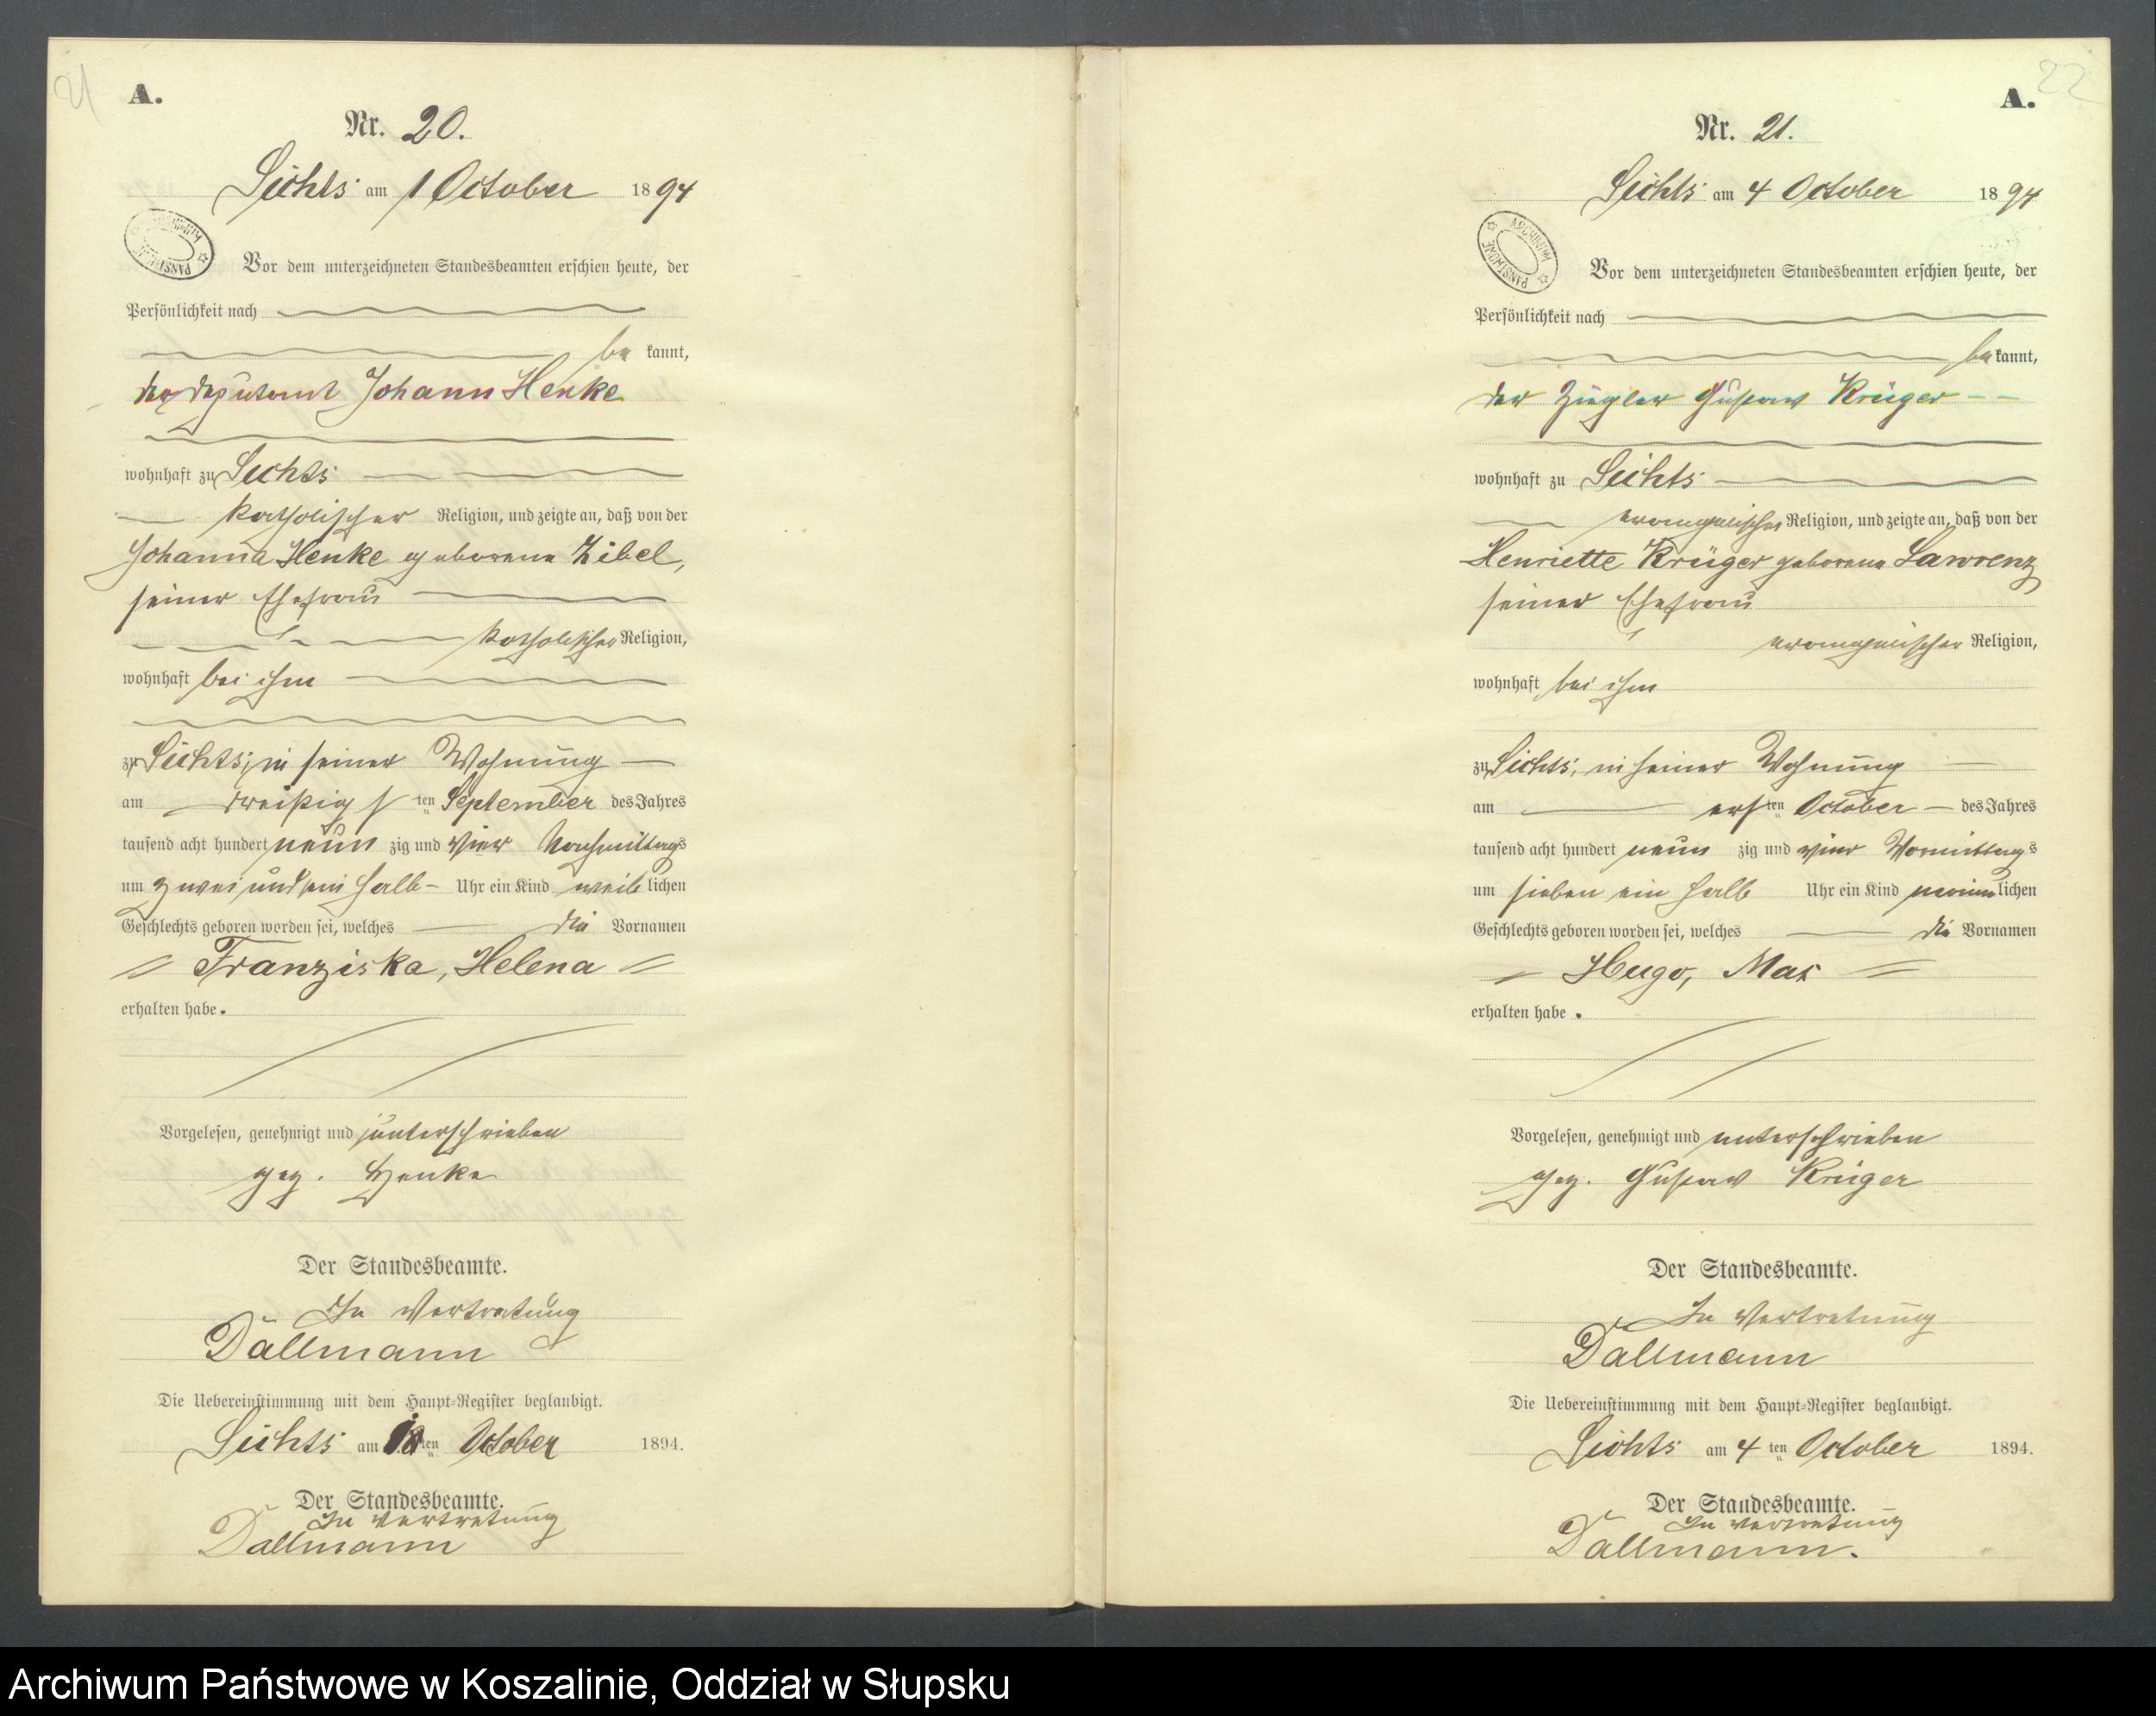 21
A.
Nr. 20.
Lichts am 1 October 1894
Vor dem unterzeichneten Standesbeamten erschien heute, der
Persönlichkeit nach
be kannt,
der Deputant Johann Henke
wohnhaft zu Lichts
katholischer Religion, und zeigte an, daß von der
Johanna Henke geborene Zibel,
seiner Ehefrau
katholischer Religion,
wohnhaft bei ihm
zu Lichts, in seiner Wohnung
am dreißigsten September des Jahres
tausend acht hundert neun zig und vier Nachmittags
um zwei und ein halb Uhr ein Kind weib lichen
Geschlechts geboren worden sei, welches die Vornamen
Franziska, Helena
erhalten habe.
Vorgelesen, genehmigt und unterschrieben
gez. Henke
Der Standesbeamte.
In Vertretung
Dallmann
Die Uebereinstimmung mit dem Haupt-Register beglaubigt.
Lichts am ten October 1894.
Der Standesbeamte.
In Vertretung
Dallmann
22
A.
Nr. 21.
Lichts am 4 October 1894
ARCHIWUM PAŃSTWOWE
Vor dem unterzeichneten Standesbeamten erschien heute, der
Persönlichkeit nach
be kannt,
der Ziegler Gustav Krüger
wohnhaft zu Lichts
evangelischer Religion, und zeigte an, daß von der
Henriette Krüger geborene Lawrenz
seiner Ehefrau
evangelischer Religion,
wohnhaft bei ihm
zu Lichts, in seiner Wohnung
am ersten October des Jahres
tausend acht hundert neun zig und vier Vormittags
um sieben ein halb Uhr ein Kind männ lichen
Geschlechts geboren worden sei, welches die Vornamen
Hugo, Max
erhalten habe.
Vorgelesen, genehmigt und unterschrieben
gez. Gustav Krüger
Der Standesbeamte.
In Vertretung
Dallmann
Die Uebereinstimmung mit dem Haupt-Register beglaubigt.
Lichts am 4 ten October 1894.
Der Standesbeamte.
In Vertretung
Dallmann.
Archiwum Państwowe w Koszalinie, Oddział w Słupsku